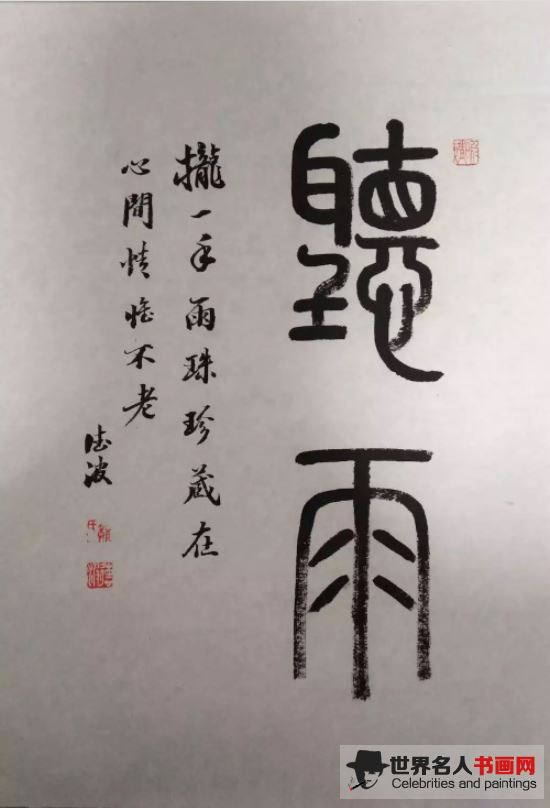 聽雨
攏一手雨珠珍藏在
心間情怀不老
德波
世界名人书画网
Celebrities and paintings